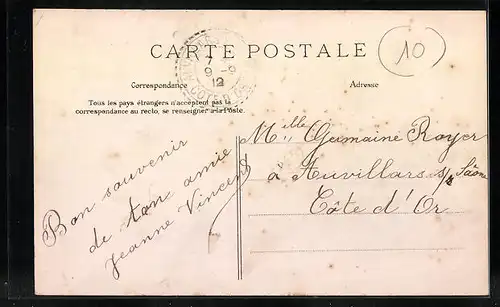 CARTE POSTALE
10
7
9 -9
12
COTE D'OR
Correspondance
Adresse
Tous les pays étrangers n'acceptent pas la
correspondance au recto, se renseigner à la Poste.
Bon souvenir
de ton amie
Jeanne Vincent
Melle Germaine Royer
à Auvillars s/ Saône
Côte d'Or